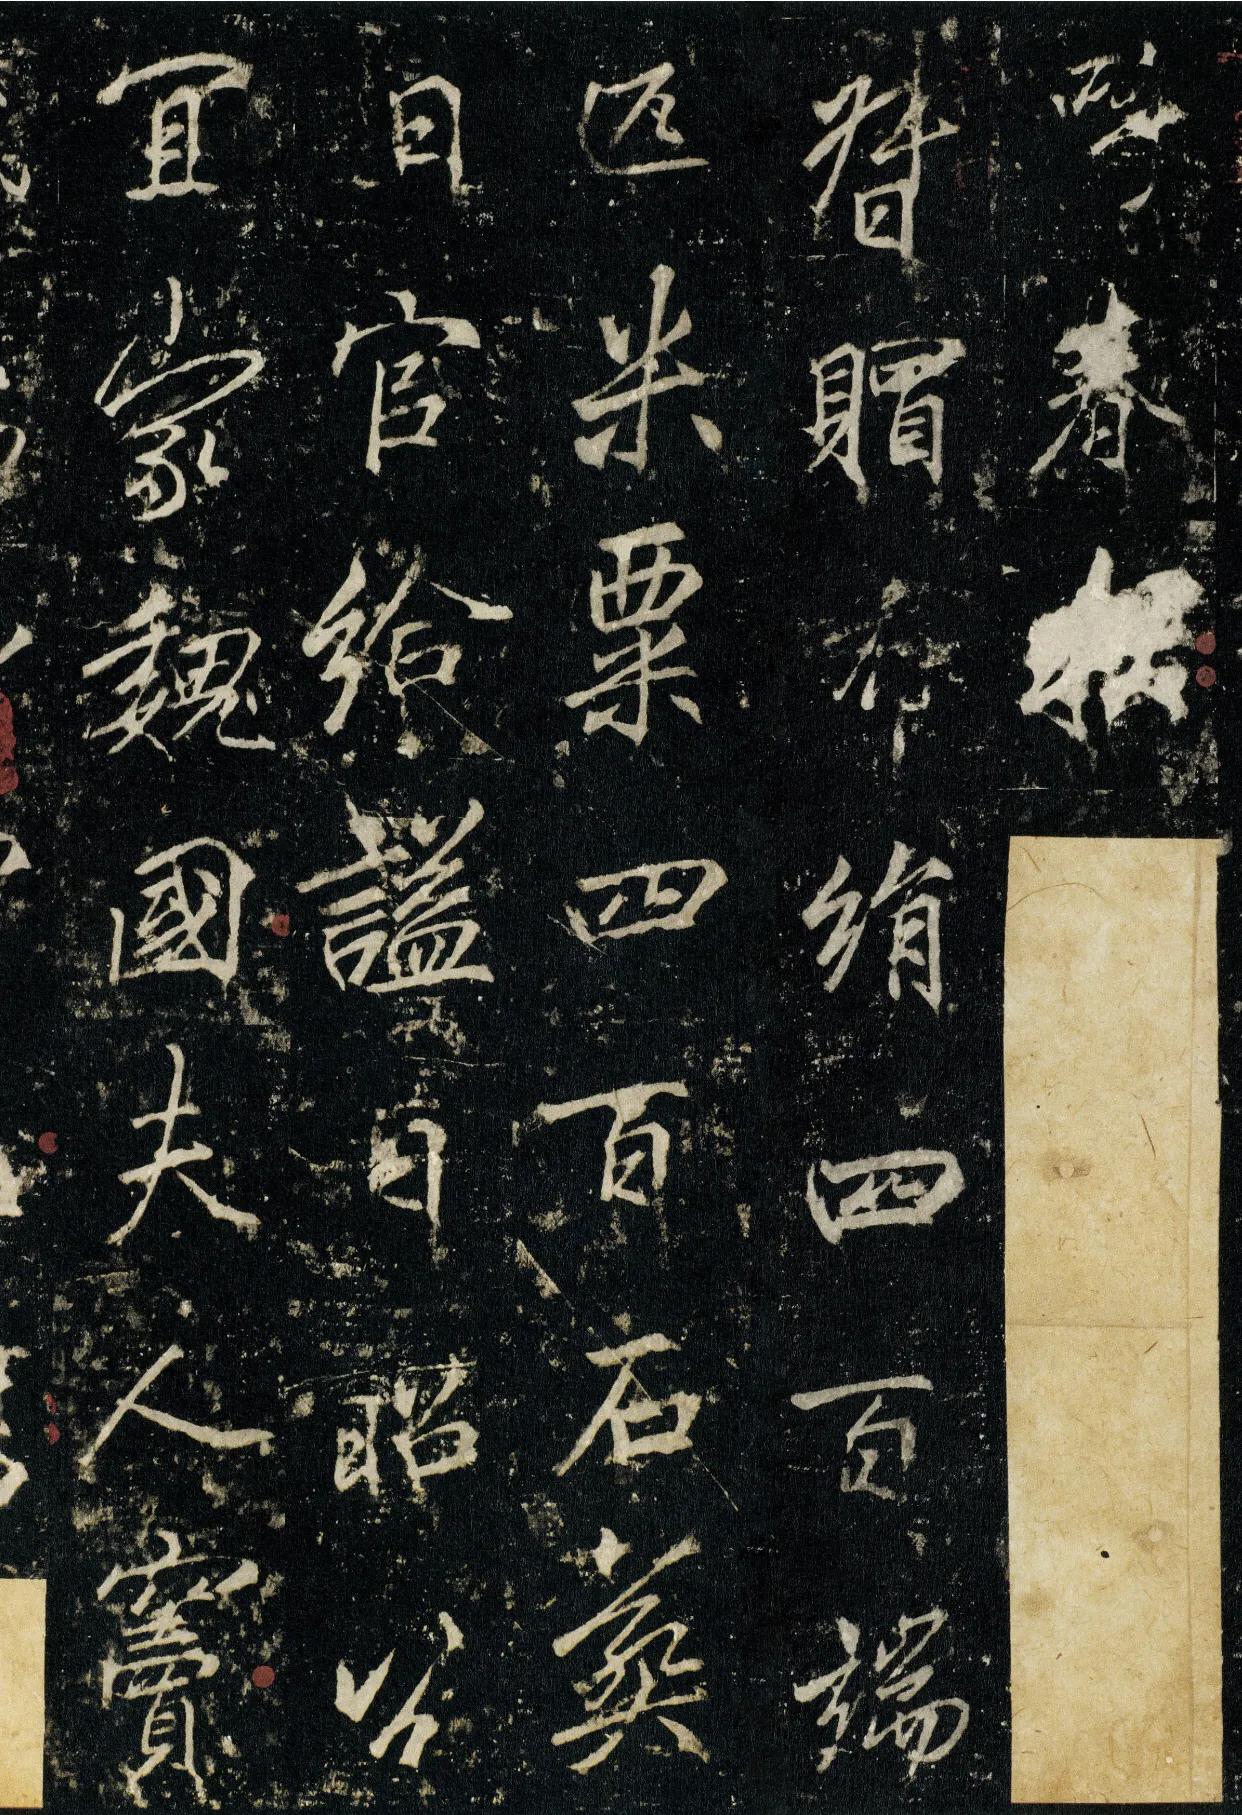 春
督賵布絹四百端
匹米粟四百石葬
日官給謚曰昭公
宜家魏國夫人竇